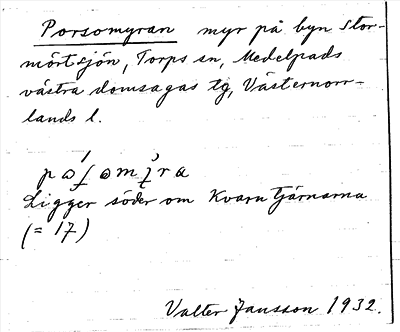 Porsomyran myr på byn Stor-
mörtsjön, Torps sn, Medelpads
västra domsagas tg, Västernorr-
lands l.
Ligger söder om Kvarntjärnarna
(= 17)
Valter Jansson 1932.